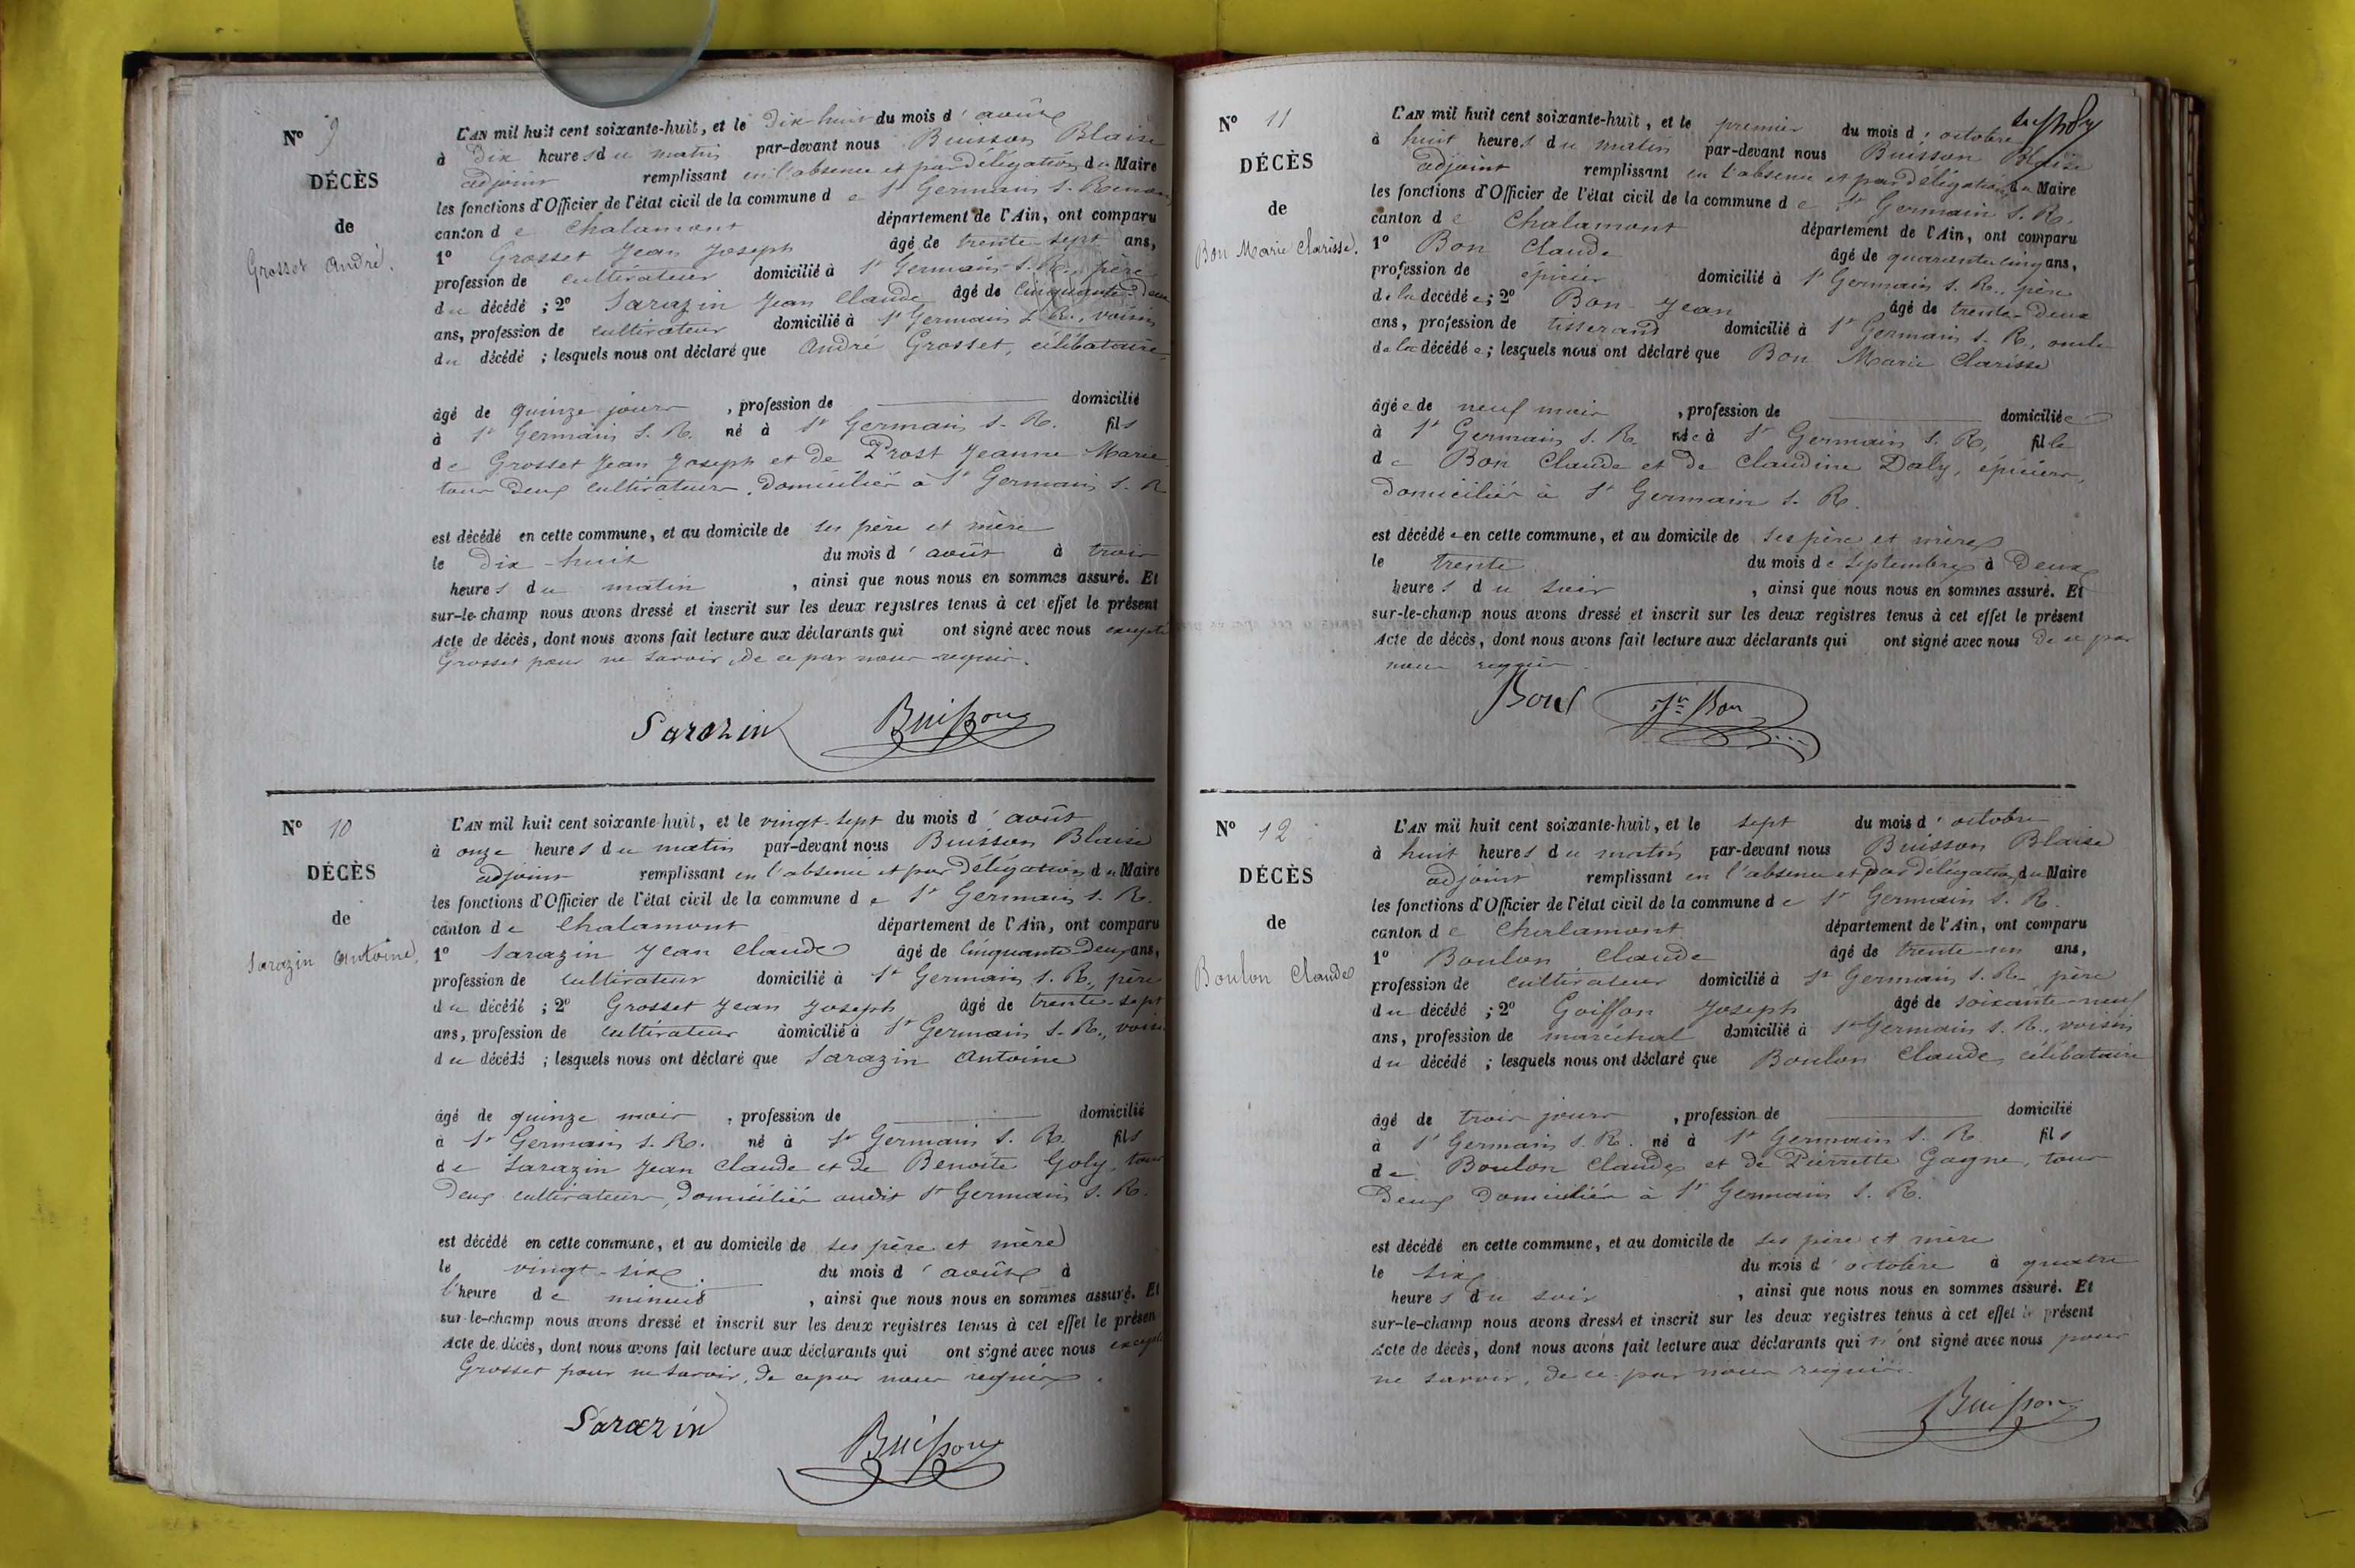 N° 9
DÉCÈS
de
Grosset André.
L'AN mil huit cent soixante-huit, et le dix-huit du mois d'août
à dix heures du matin par-devant nous Buisson Blaise
adjoint remplissant en l'absence et par délégation du Maire
les fonctions d'Officier de l'état civil de la commune de St Germain S. Renon
canton de Chalamont département de l'Ain, ont comparu
1° Grosset Jean Joseph âgé de trente-sept ans,
profession de cultivateur domicilié à St Germain S. R., père
du décédé ; 2° Sarazin Jean Claude âgé de cinquante-deux
ans, profession de cultivateur domicilié à St Germain S. R., voisin
du décédé ; lesquels nous ont déclaré que André Grosset, célibataire
âgé de quinze jours , profession de domicilié
à St Germain S. R. né à St Germain S. R. fils
de Grosset Jean Joseph et de Prost Jeanne Marie
tous deux cultivateurs, domiciliés à St Germain S. R
est décédé en cette commune, et au domicile de ses père et mère
le dix-huit du mois d'août à trois
heures du matin , ainsi que nous nous en sommes assuré. Et
sur-le-champ nous avons dressé et inscrit sur les deux registres tenus à cet effet le présent
Acte de décès, dont nous avons fait lecture aux déclarants qui ont signé avec nous excepté
Grosset pour ne savoir, de ce par nous requis.
Sarozin Buisson
N° 10
DÉCÈS
de
Sarazin Antoine.
L'AN mil huit cent soixante-huit, et le vingt-sept du mois d'août
à onze heures du matin par-devant nous Buisson Blaise
adjoint remplissant en l'absence et par délégation du Maire
les fonctions d'Officier de l'état civil de la commune de St Germain S. R.
canton de Chalamont département de l'Ain, ont comparu
1° Sarazin Jean Claude âgé de cinquante-deux ans,
profession de cultivateur domicilié à St Germain S. R., père
du décédé ; 2° Grosset Jean Joseph âgé de trente-sept
ans, profession de cultivateur domicilié à St Germain S. R., voisin
du décédé ; lesquels nous ont déclaré que Sarazin Antoine
âgé de quinze mois , profession de domicilié
à St Germain S. R. né à St Germain S. R. fils
de Sarazin Jean Claude et de Benoîte Goly, tous
deux cultivateurs, domiciliés audit St Germain S. R.
est décédé en cette commune, et au domicile de ses père et mère
le vingt-six du mois d'août à
l'heure de minuit , ainsi que nous nous en sommes assuré. Et
sur-le-champ nous avons dressé et inscrit sur les deux registres tenus à cet effet le présen
Acte de décès, dont nous avons fait lecture aux déclarants qui ont signé avec nous excepté
Grosset pour ne savoir, de ce par nous requis.
Sarazin
Buisson
N° 11
DÉCÈS
de
Bon Marie Clarisse.
L'AN mil huit cent soixante-huit, et le premier du mois d'octobre
à huit heures du matin par-devant nous Buisson Blaise
adjoint remplissant en l'absence et par délégation du Maire
les fonctions d'Officier de l'état civil de la commune de St Germain S. R.
canton de Chalamont département de l'Ain, ont comparu
1° Bon Claude âgé de quarante cinq ans,
profession de épicier domicilié à St Germain S. R., père
de la décédée ; 2° Bon Jean âgé de trente-deux
ans, profession de tisserand domicilié à St Germain S. R., oncle
de la décédée ; lesquels nous ont déclaré que Bon Marie Clarisse
âgée de neuf mois , profession de domiciliée
à St Germain S. R. née à St Germain S. R, fille
de Bon Claude et de Claudine Daly, épiciers,
domiciliés à St Germain S. R.
est décédée en cette commune, et au domicile de ses père et mère
le trente du mois de septembre à deux
heures du soir , ainsi que nous nous en sommes assuré. Et
sur-le-champ nous avons dressé et inscrit sur les deux registres tenus à cet effet le présent
Acte de décès, dont nous avons fait lecture aux déclarants qui ont signé avec nous de ce par
nous requis.
Bon Jn Bon
N° 12
DÉCÈS
de
Boulon Claude
L'AN mil huit cent soixante-huit, et le sept du mois d'octobre
à huit heures du matin par-devant nous Buisson Blaise
adjoint remplissant en l'absence et par délégation du Maire
les fonctions d'Officier de l'état civil de la commune de St Germain S. R.
canton de Chalamont département de l'Ain, ont comparu
1° Boulon Claude âgé de trente-un ans,
profession de cultivateur domicilié à St Germain S. R. père
du décédé ; 2° Goiffon Joseph âgé de soixante-neuf
ans, profession de maréchal domicilié à St Germain S. R., voisin
du décédé ; lesquels nous ont déclaré que Boulon Claude, célibataire
âgé de trois jours , profession de domicilié
à St Germain S. R. né à St Germain S. R. fils
de Boulon Claude et de Pierrette Gagne, tous
deux domiciliés à St Germain S. R.
est décédé en cette commune, et au domicile de ses père et mère
le six du mois d'octobre à quatre
heures du soir , ainsi que nous nous en sommes assuré. Et
sur-le-champ nous avons dressé et inscrit sur les deux registres tenus à cet effet le présent
Acte de décès, dont nous avons fait lecture aux déclarants qui n'ont signé avec nous pour
ne savoir, de ce par nous requis.
Buisson